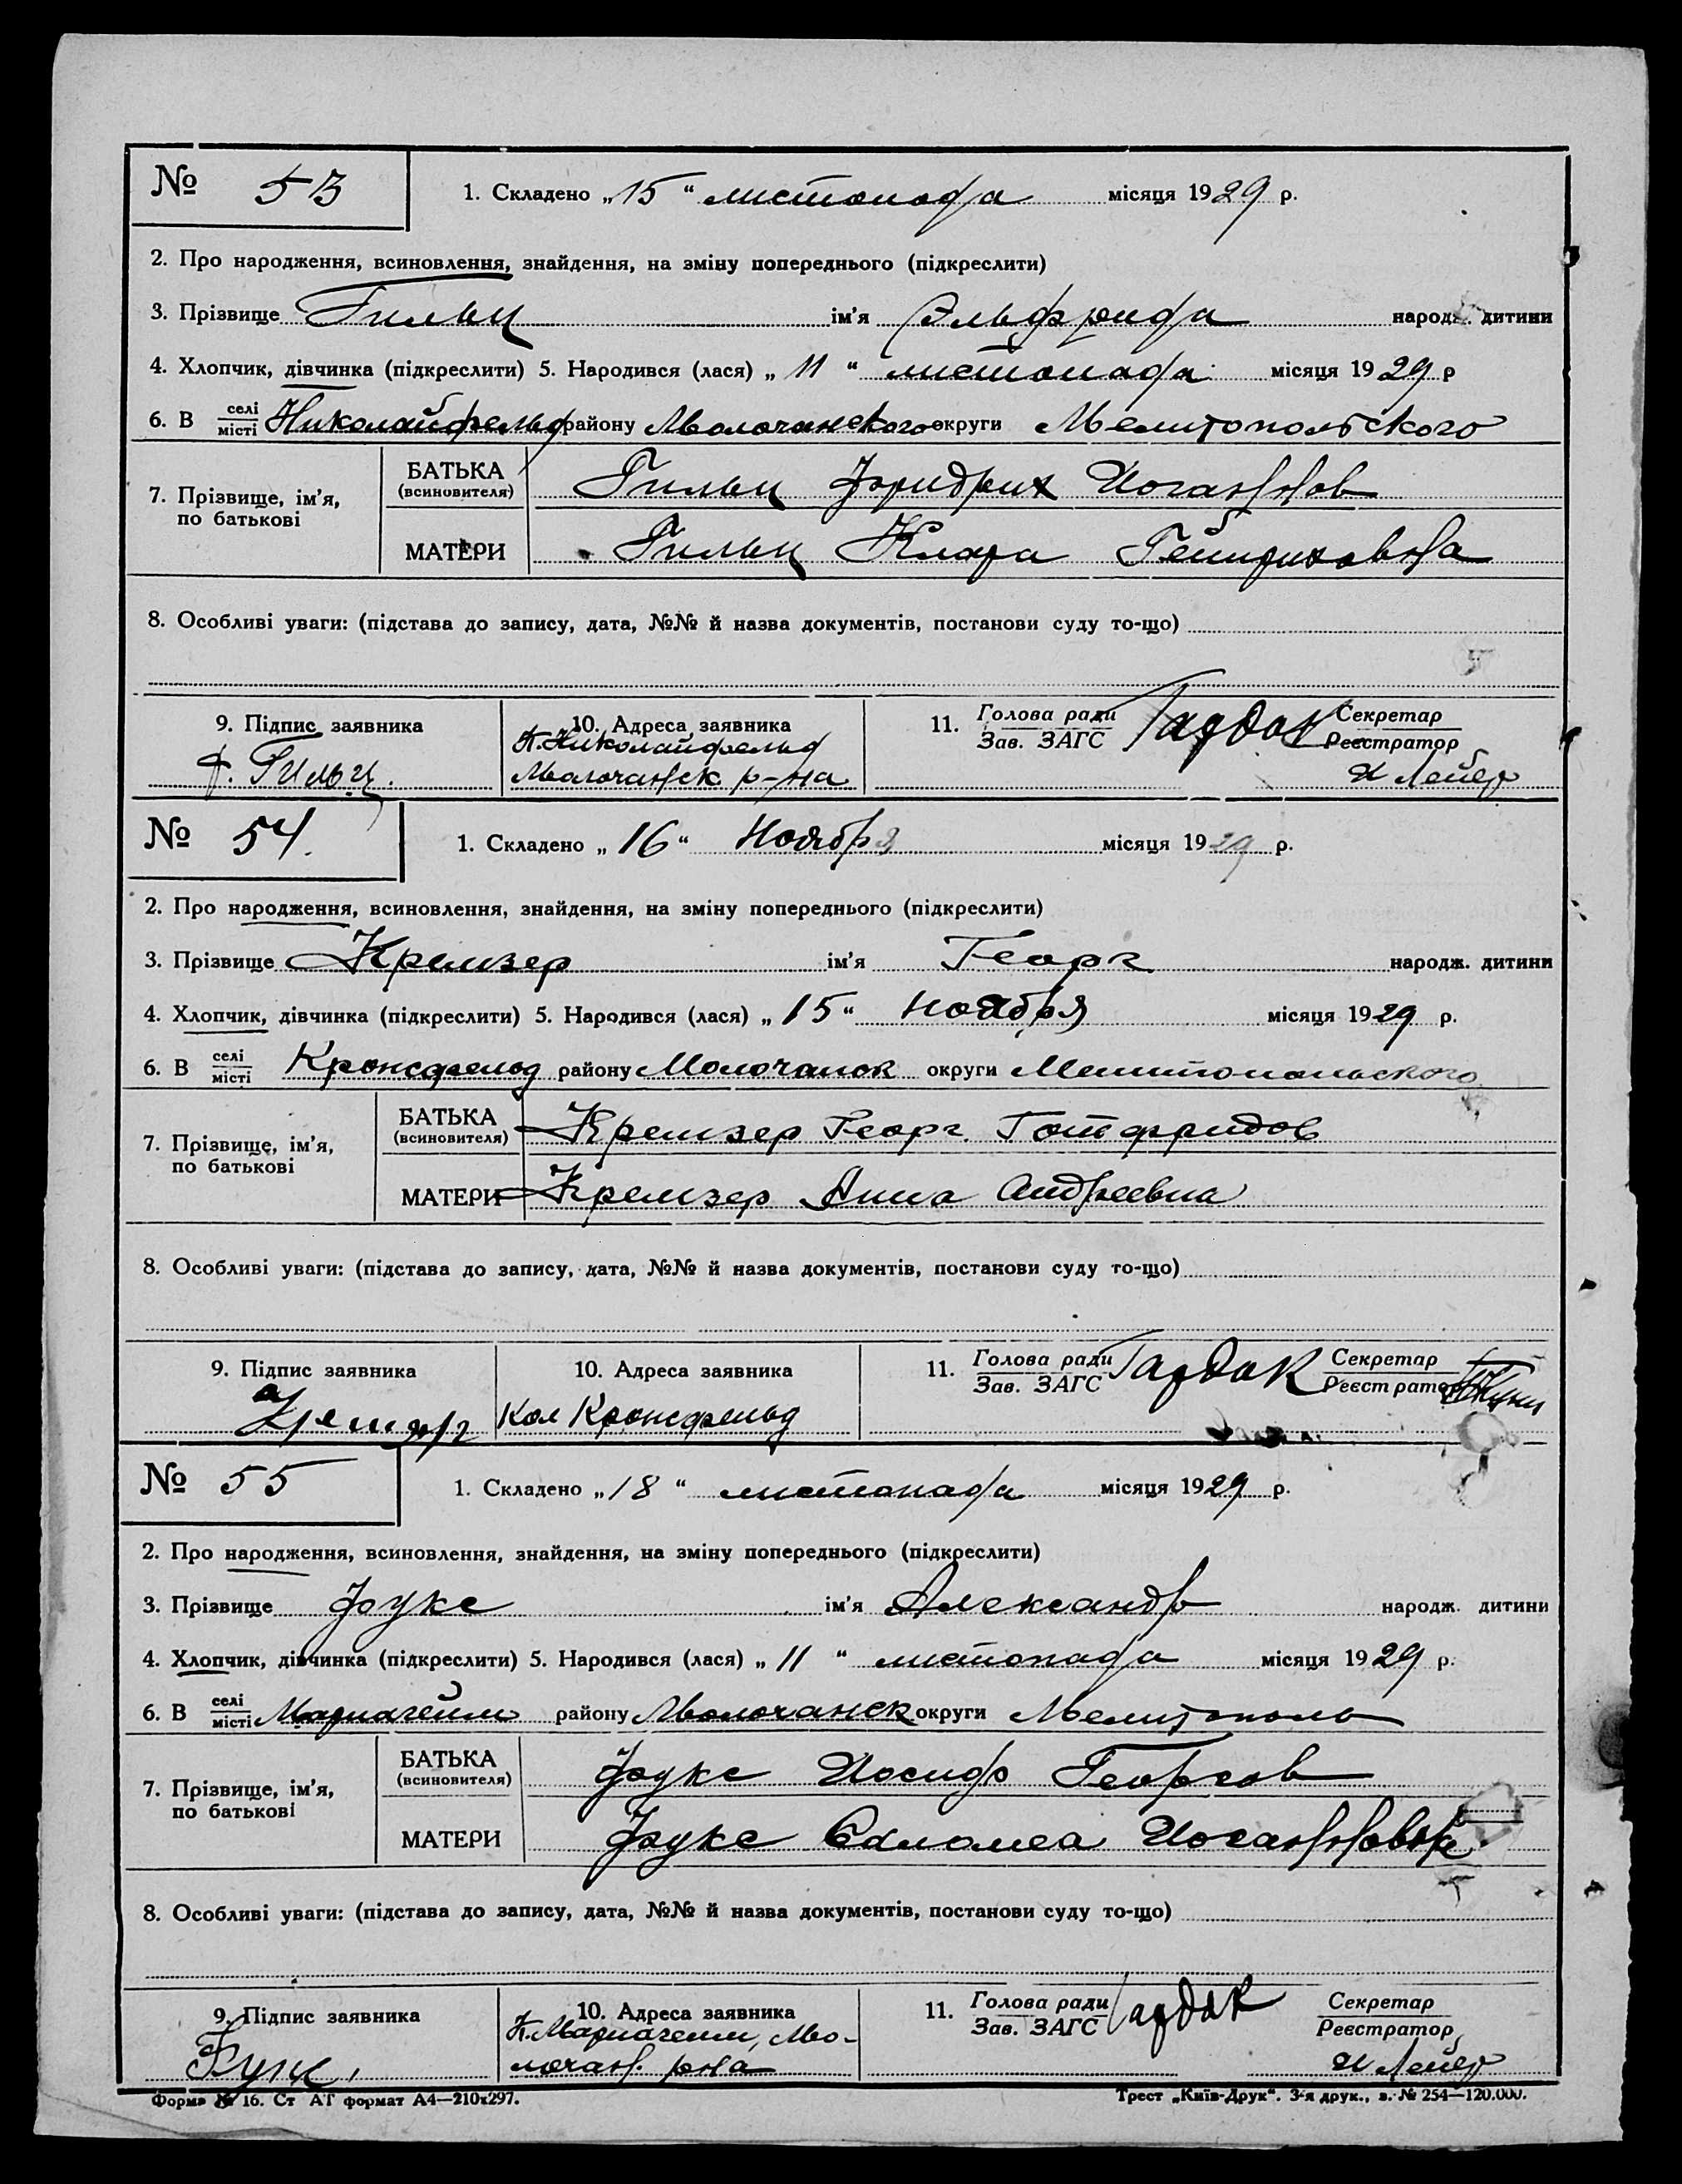 № 53
1. Складено „15“ листопада місяця 1929 р.
2. Про народження, всиновлення, знайдення, на зміну попереднього (підкреслити)
3. Прізвище Гильц ім’я Эльфрида народж. дитини
4. Хлопчик, дівчинка (підкреслити) 5. Народився (лася) „11“ листопада місяця 1929 р
6. В селі місті Николайфельд району Молочанского округи Мелитопольского
7. Прізвище, ім’я, по батькові
БАТЬКА (всиновителя) Гильц Фридрих Иоганнов
МАТЕРИ Гильц Клара Гейнриховна
8. Особливі уваги: (підстава до запису, дата, №№ й назва документів, постанови суду то-що)
9. Підпис заявника 10. Адреса заявника 11. Голова ради Зав. ЗАГС Секретар Реєстратор
К. Николайфельд
Ф. Гильц. Молочанск р-на И Лейер
№ 54.
1. Складено „16“ Ноября місяця 1929 р.
2. Про народження, всиновлення, знайдення, на зміну попереднього (підкреслити)
3. Прізвище Кремзер ім’я Георг народж. дитини
4. Хлопчик, дівчинка (підкреслити) 5. Народився (лася) „15“ ноября місяця 1929 р.
6. В селі місті Кронсфельд району Молочанск округи Мелитопольского
7. Прізвище, ім’я, по батькові
БАТЬКА (всиновителя) Кремзер Георг Готфридов
МАТЕРИ Кремзер Анна Андреевна
8. Особливі уваги: (підстава до запису, дата, №№ й назва документів, постанови суду то-що)
9. Підпис заявника 10. Адреса заявника 11. Голова ради Зав. ЗАГС Секретар Реєстратор
Кол Кронсфельд
№ 55
1. Складено „18“ листопада місяця 1929 р.
2. Про народження, всиновлення, знайдення, на зміну попереднього (підкреслити)
3. Прізвище Фукс ім’я Александр народж. дитини
4. Хлопчик, дівчинка (підкреслити) 5. Народився (лася) „11“ листопада місяця 1929 р.
6. В селі місті Мариагейм району Молочанск округи Мелитополь
7. Прізвище, ім’я, по батькові
БАТЬКА (всиновителя) Фукс Иосиф Георгов
МАТЕРИ Фукс Саломеа Иоганновна
8. Особливі уваги: (підстава до запису, дата, №№ й назва документів, постанови суду то-що)
9. Підпис заявника 10. Адреса заявника 11. Голова ради Зав. ЗАГС Секретар Реєстратор
К. Мариагейм, Мо-
лочан. рна И Лейер
Форма № 16. Ст АТ формат А4—210х297.
Трест „Київ-Друк“. 3-я друк., з. № 254—120.000.